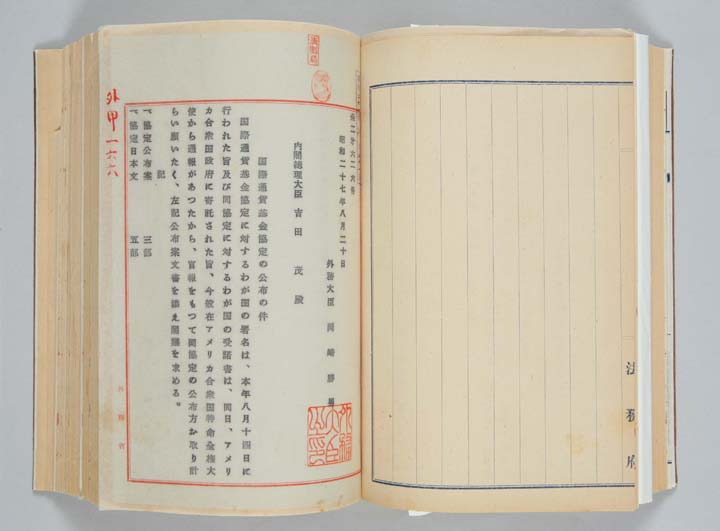 昭和二十七年八月二十日
外務大臣 岡崎勝男
内閣総理大臣 吉田 茂 殿
国際通貨基金協定の公布の件
国際通貨基金協定に対するわが国の署名は、本年八月十四日に
行われた旨及び同協定に対するわが国の受諾書は、同日、アメリ
カ合衆国政府に寄託された旨、今般在アメリカ合衆国特命全権大
使から通報があつたから、官報をもつて同協定の公布方お取り計
らい願いたく、左記公布案文書を添え閣議を求める。
記
一、協定公布案 三部
一、協定日本文 五部
外甲一六六
外務省
法務府